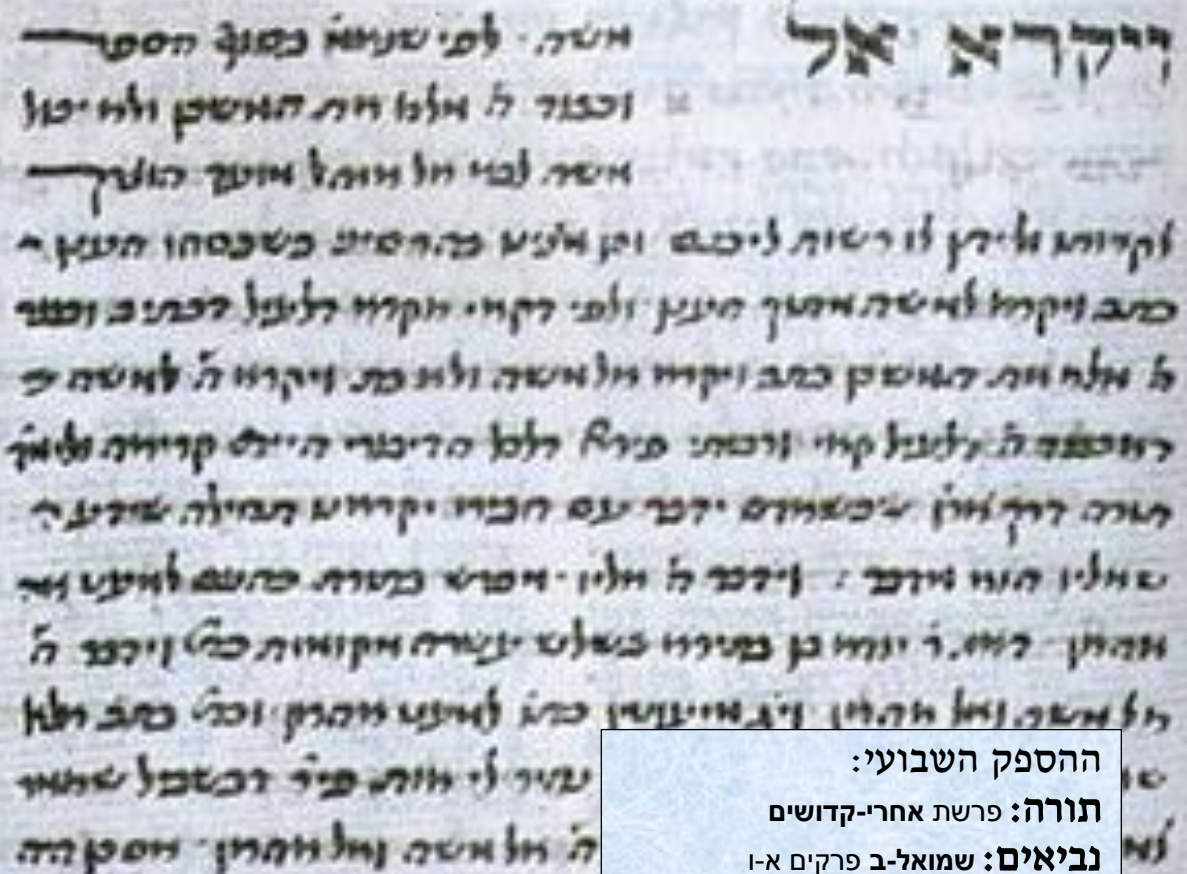 ויקרא אל
משה. לפי שנאמר בסוף הספר
וכבוד ה' מלא את המשכן ולא יכול
משה לבוא אל אוהל מועד הוצרך
לקרותו וליתן לו רשות ליכנס וכן כשכסהו הענן
כתב ויקרא למשה מתוך הענן ולפי דקאי דלעיל דכתיב וכבוד
ה' מלא את המשכן כתב ויקרא אל משה ולא כת' ויקרא ה' למשה כי
דאכבוד ה' דלעיל קאי דלכל הדיבורי' קריאה
תורה דרך ארץ שכשאדם ידבר עם חבירו תחילה שידע
שאליו הוא מדבר : וידבר ה' אליו. מפרש בתורת כהנים למעט את
אהרן. ר' יהודה בן בתירא בשלש עשרה מקומות כת' וידבר ה'
אל משה ואל אהרן וי"ג מיעוטין למעט אהרן כתב ולא
לי
ה' אל משה ואל אהרן.
ההספק השבועי:
תורה: פרשת אחרי-קדושים
נביאים: שמואל-ב פרקים א-ו